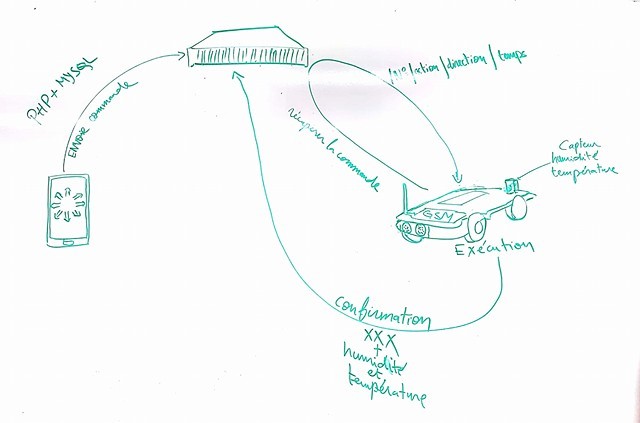 PHP + MySQL
Envoie commande
N°/action/direction/temps
récupérer la commande
Capteur
humidité
température
GSM
Exécution
Confirmation
XXX
+
humidité
et
température